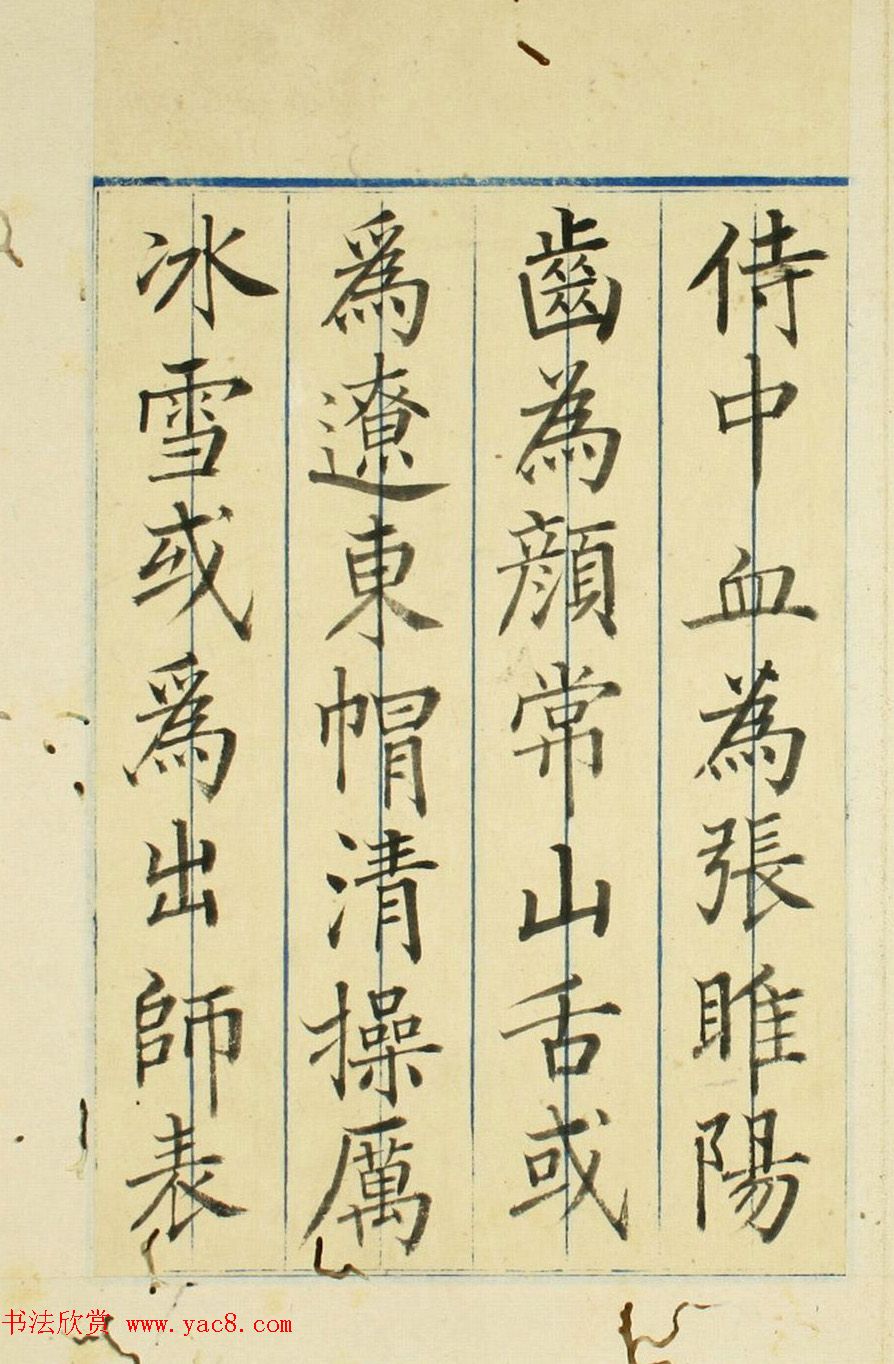 侍中血為張睢陽
齒為顔常山舌或
爲遼東帽清操厲
冰雪或爲出師表
书法欣赏 www.yac8.com